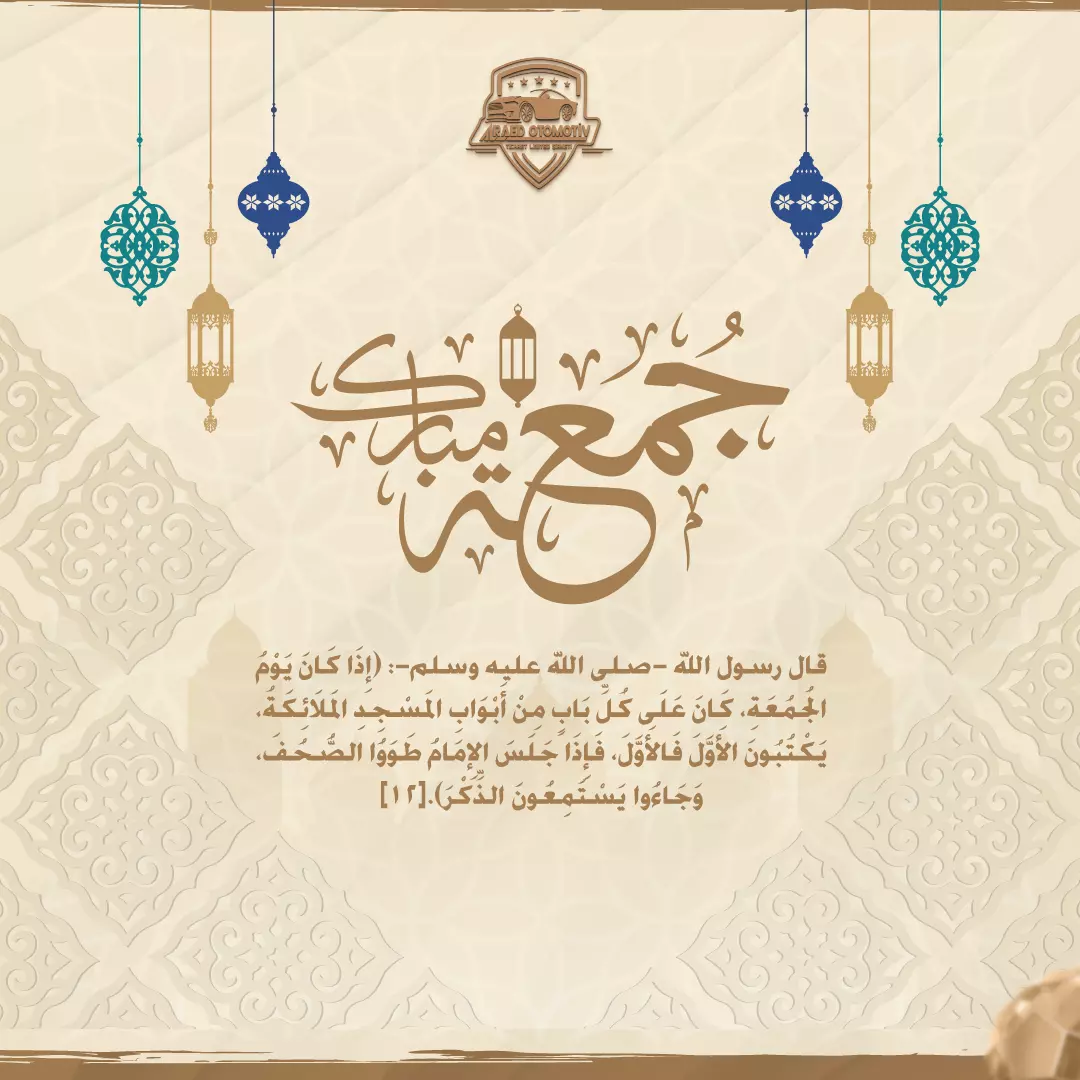 RAED OTOMOTİV
TİCARET LİMİTED ŞİRKETİ
جُمعة مباركة
قال رسول الله -صلى الله عليه وسلم-: (إِذَا كَانَ يَوْمُ
الجُمُعَةِ، كَانَ عَلَى كُلِّ بَابٍ مِنْ أَبْوَابِ المَسْجِدِ المَلَائِكَةُ،
يَكْتُبُونَ الأوَّلَ فَالأوَّلَ، فَإِذَا جَلَسَ الإمَامُ طَوَوُا الصُّحُفَ،
وَجَاءُوا يَسْتَمِعُونَ الذِّكْرَ).[١٢]